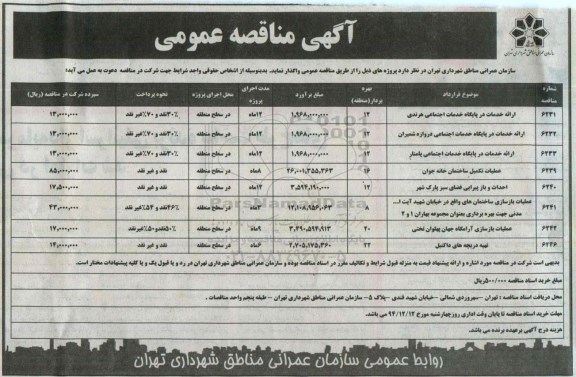 آگهی مناقصه عمومی
سازمان عمرانی مناطق شهرداری تهران
سازمان عمرانی مناطق شهرداری تهران در نظر دارد پروژه های ذیل را از طریق مناقصه عمومی واگذار نماید. بدینوسیله از اشخاص حقوقی واجد شرایط جهت شرکت در مناقصه دعوت به عمل می آید:
شماره مناقصه موضوع قرارداد بهره بردار(منطقه) مبلغ برآورد مدت اجرای پروژه محل اجرای پروژه نحوه پرداخت سپرده شرکت در مناقصه (ریال)
۶۲۳۱ ارائه خدمات در پایگاه خدمات اجتماعی هرندی ۱۲ ۱,۹۶۸,۰۰۰,۰۰۰ ۱۲ماه در سطح منطقه ۳۰٪نقد و ۷۰٪غیر نقد ۱۳,۰۰۰,۰۰۰
۶۲۳۲ ارائه خدمات در پایگاه خدمات اجتماعی دروازه شمیران ۱۲ ۱,۹۶۸,۰۰۰,۰۰۰ ۱۲ماه در سطح منطقه ۳۰٪نقد و ۷۰٪غیر نقد ۱۳,۰۰۰,۰۰۰
۶۲۳۳ ارائه خدمات در پایگاه خدمات اجتماعی پامنار ۱۲ ۱,۹۶۸,۰۰۰,۰۰۰ ۱۲ماه در سطح منطقه ۳۰٪نقد و ۷۰٪غیر نقد ۱۳,۰۰۰,۰۰۰
۶۲۳۹ عملیات تکمیل ساختمان خانه جوان ۱۶ ۲۶,۰۰۱,۳۵۵,۳۶۳ ۸ماه در سطح منطقه نقد و غیر نقد ۸۵,۰۰۰,۰۰۰
۶۲۴۰ احداث و باز پیرایی فضای سبز پارک شهر ۱۲ ۳,۵۹۴,۱۹۰,۰۰۰ ۱۲ماه در سطح منطقه نقد و غیر نقد ۱۷,۵۰۰,۰۰۰
۶۲۴۱ عملیات بازسازی ساختمان های واقع در خیابان شهید آیت ا... مدنی جهت بهره برداری بعنوان مجموعه بهاران ۱ و ۲ ۸ ۱۲,۱۰۸,۹۵۶,۰۶۳ ۳ماه در سطح منطقه ۴۶٪نقد و ۵۴٪غیر نقد ۴۳,۰۰۰,۰۰۰
۶۲۴۲ عملیات بازسازی آرامگاه جهان پهلوان تختی ۲۰ ۳,۲۹۰,۵۹۴,۹۱۳ ۹ماه در سطح منطقه ۵۰٪نقدو ۵۰٪غیرنقد ۱۷,۰۰۰,۰۰۰
۶۲۳۶ تهیه دریچه های داکتیل ۲۲ ۲,۷۰۵,۱۷۵,۳۶۰ ۶ماه در سطح منطقه نقد و غیر نقد ۱۴,۰۰۰,۰۰۰
بدیهی است شرکت در مناقصه مورد اشاره و ارائه پیشنهاد قیمت به منزله قبول شرایط و تکالیف مقرر در اسناد مناقصه بوده و سازمان عمرانی مناطق شهرداری تهران در رد و یا قبول یک و یا کلیه پیشنهادات مختار است.
مبلغ خرید اسناد مناقصه ۵۰۰/۰۰۰ریال
محل دریافت اسناد مناقصه : تهران -سهروردی شمالی -خیابان شهید قندی -پلاک ۵- سازمان عمرانی مناطق شهرداری تهران - طبقه پنجم واحد مناقصات .
مهلت خرید اسناد مناقصه تا پایان وقت اداری روزچهارشنبه مورخ ۹۴/۱۲/۱۲ می باشد.
هزینه درج آگهی برعهده برنده می باشد.
روابط عمومی سازمان عمرانی مناطق شهرداری تهران
ParsNamadData